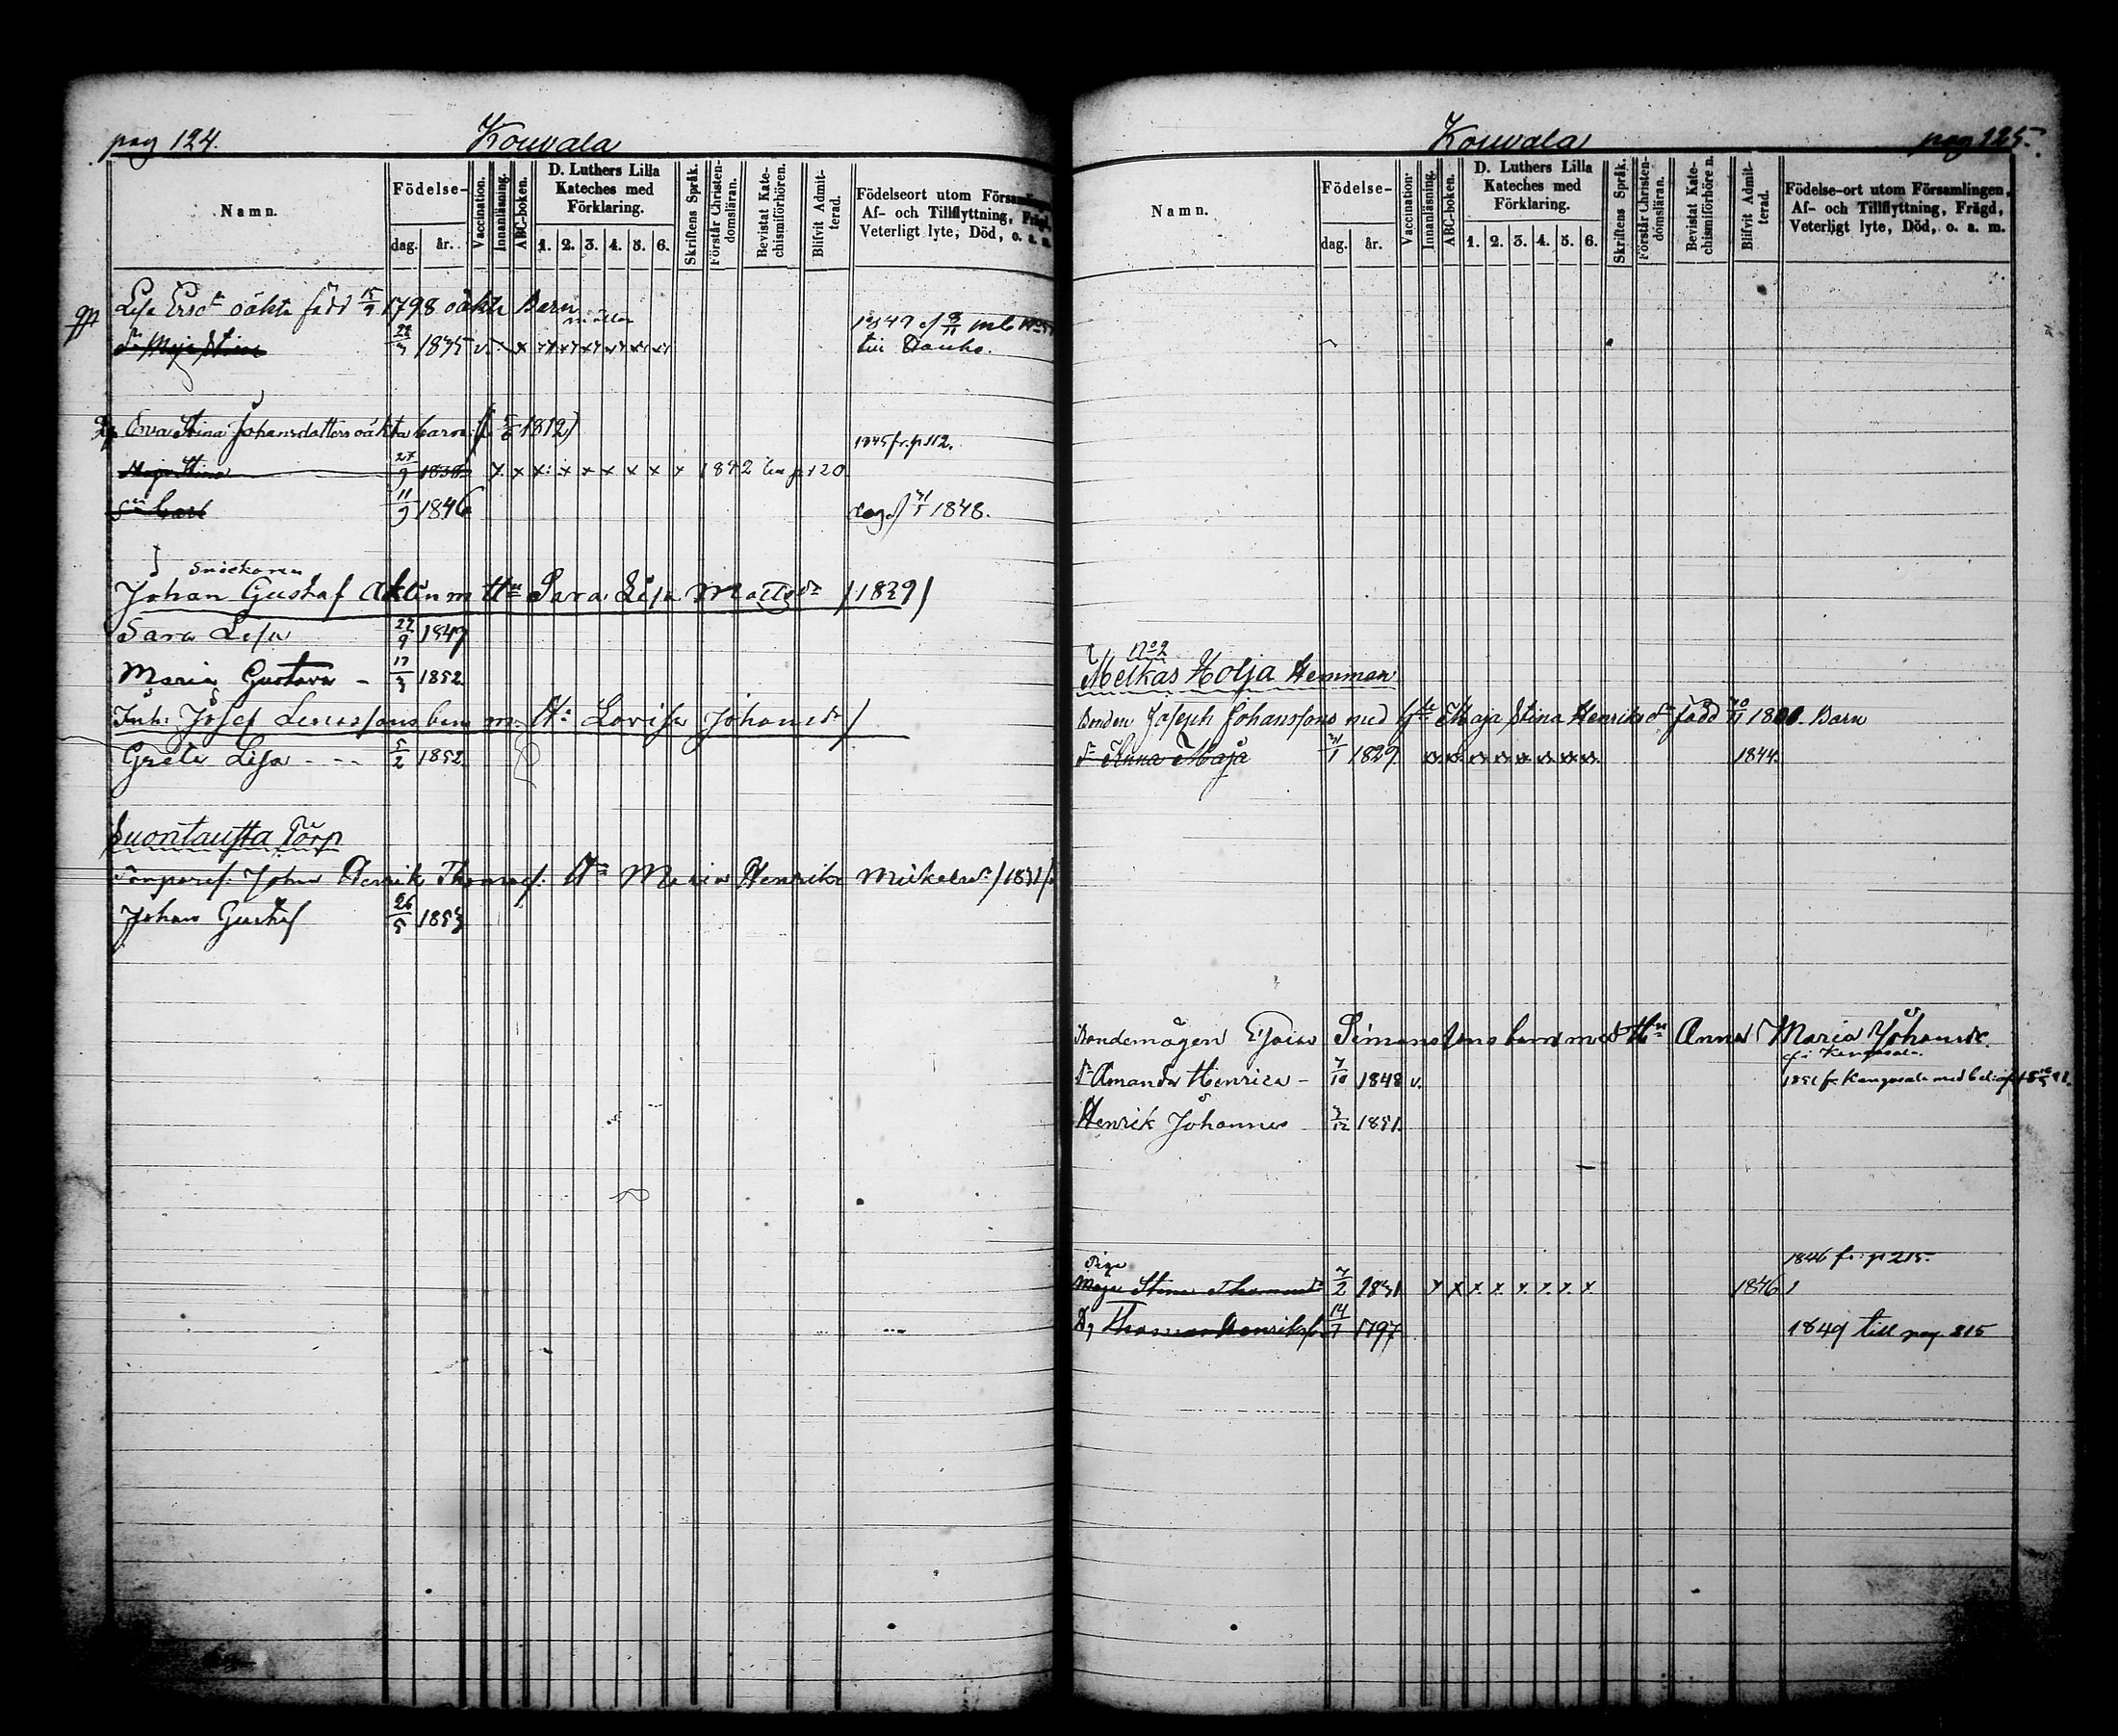 pag 124. Kouvala
Namn.
Födelse-
dag. år.
Vaccination.
Innanläsning.
ABC-boken.
D. Luthers Lilla
Kateches med
Förklaring.
1. 2. 3. 4. 5. 6.
Skriftens Språk.
Förstår Christen-
domsläran.
Bevistat Kate-
chismiförhören.
Blifvit Admit-
terad.
Födelseort utom Församlingen
Af- och Tillflyttning, Frägd,
Veterligt lyte, Död, o. a. m.
Lisa Ersdr oäkta född 15/9 1798 oäkta Barn
dr Maja Stina 22/3 1835 v. x
till Hauho.
Eva Stina Johansdotters oäkta barn (f. 5/6 1812)
1845 fr. p 112.
Maja Stina 27/9 1838 x x x x x x x x x 1842 till p 120
sn Carl 11/9 1846 31/1 1848.
Snickaren
Johan Gustaf m Hu Sara Lisa Mattsdr /1829/
Sara Lisa 22/9 1849
Maria Gustava - 17/3 1852
Inh: Josef barn m. H: Lovisa Johansdr/
Greta Lisa - - - 5/2 1852
Suontausta Torp
Johan Henrik Hu Maria Henrika Mickelsdr /1831/
Johan Gustaf 26/5 1853
Kouvala pag 125.
Namn.
Födelse-
dag. år.
Vaccination.
Innanläsning.
ABC-boken.
D. Luthers Lilla
Kateches med
Förklaring.
1. 2. 3. 4. 5. 6.
Skriftens Språk.
Förstår Christen-
domsläran.
Bevistat Kate-
chismiförhören.
Blifvit Admit-
terad.
Födelse-ort utom Församlingen,
Af- och Tillflyttning, Frägd,
Veterligt lyte, Död, o. a. m.
No 2
Melkas Holja Hemman
Bonden Joseph Johanssons med Maja Stina Henriksdr född Barn
dr Anna Maja 31/1 1829 1844.
Bondemågen Esaias Simonssons barn med Hu Anna Maria Johansdr.
dr Amanda Henrica - 7/10 1848 v.
1851 fr Kangasala med bet: af
Henrik Johannes 3/12 1851.
1846 fr: p 215.
Piga
Maja Stina Thomasdr 7/2 1831 x x x x x x x x 1846
Dg Thomas Henrikss. 14/1 1797 1849 till pag. 215